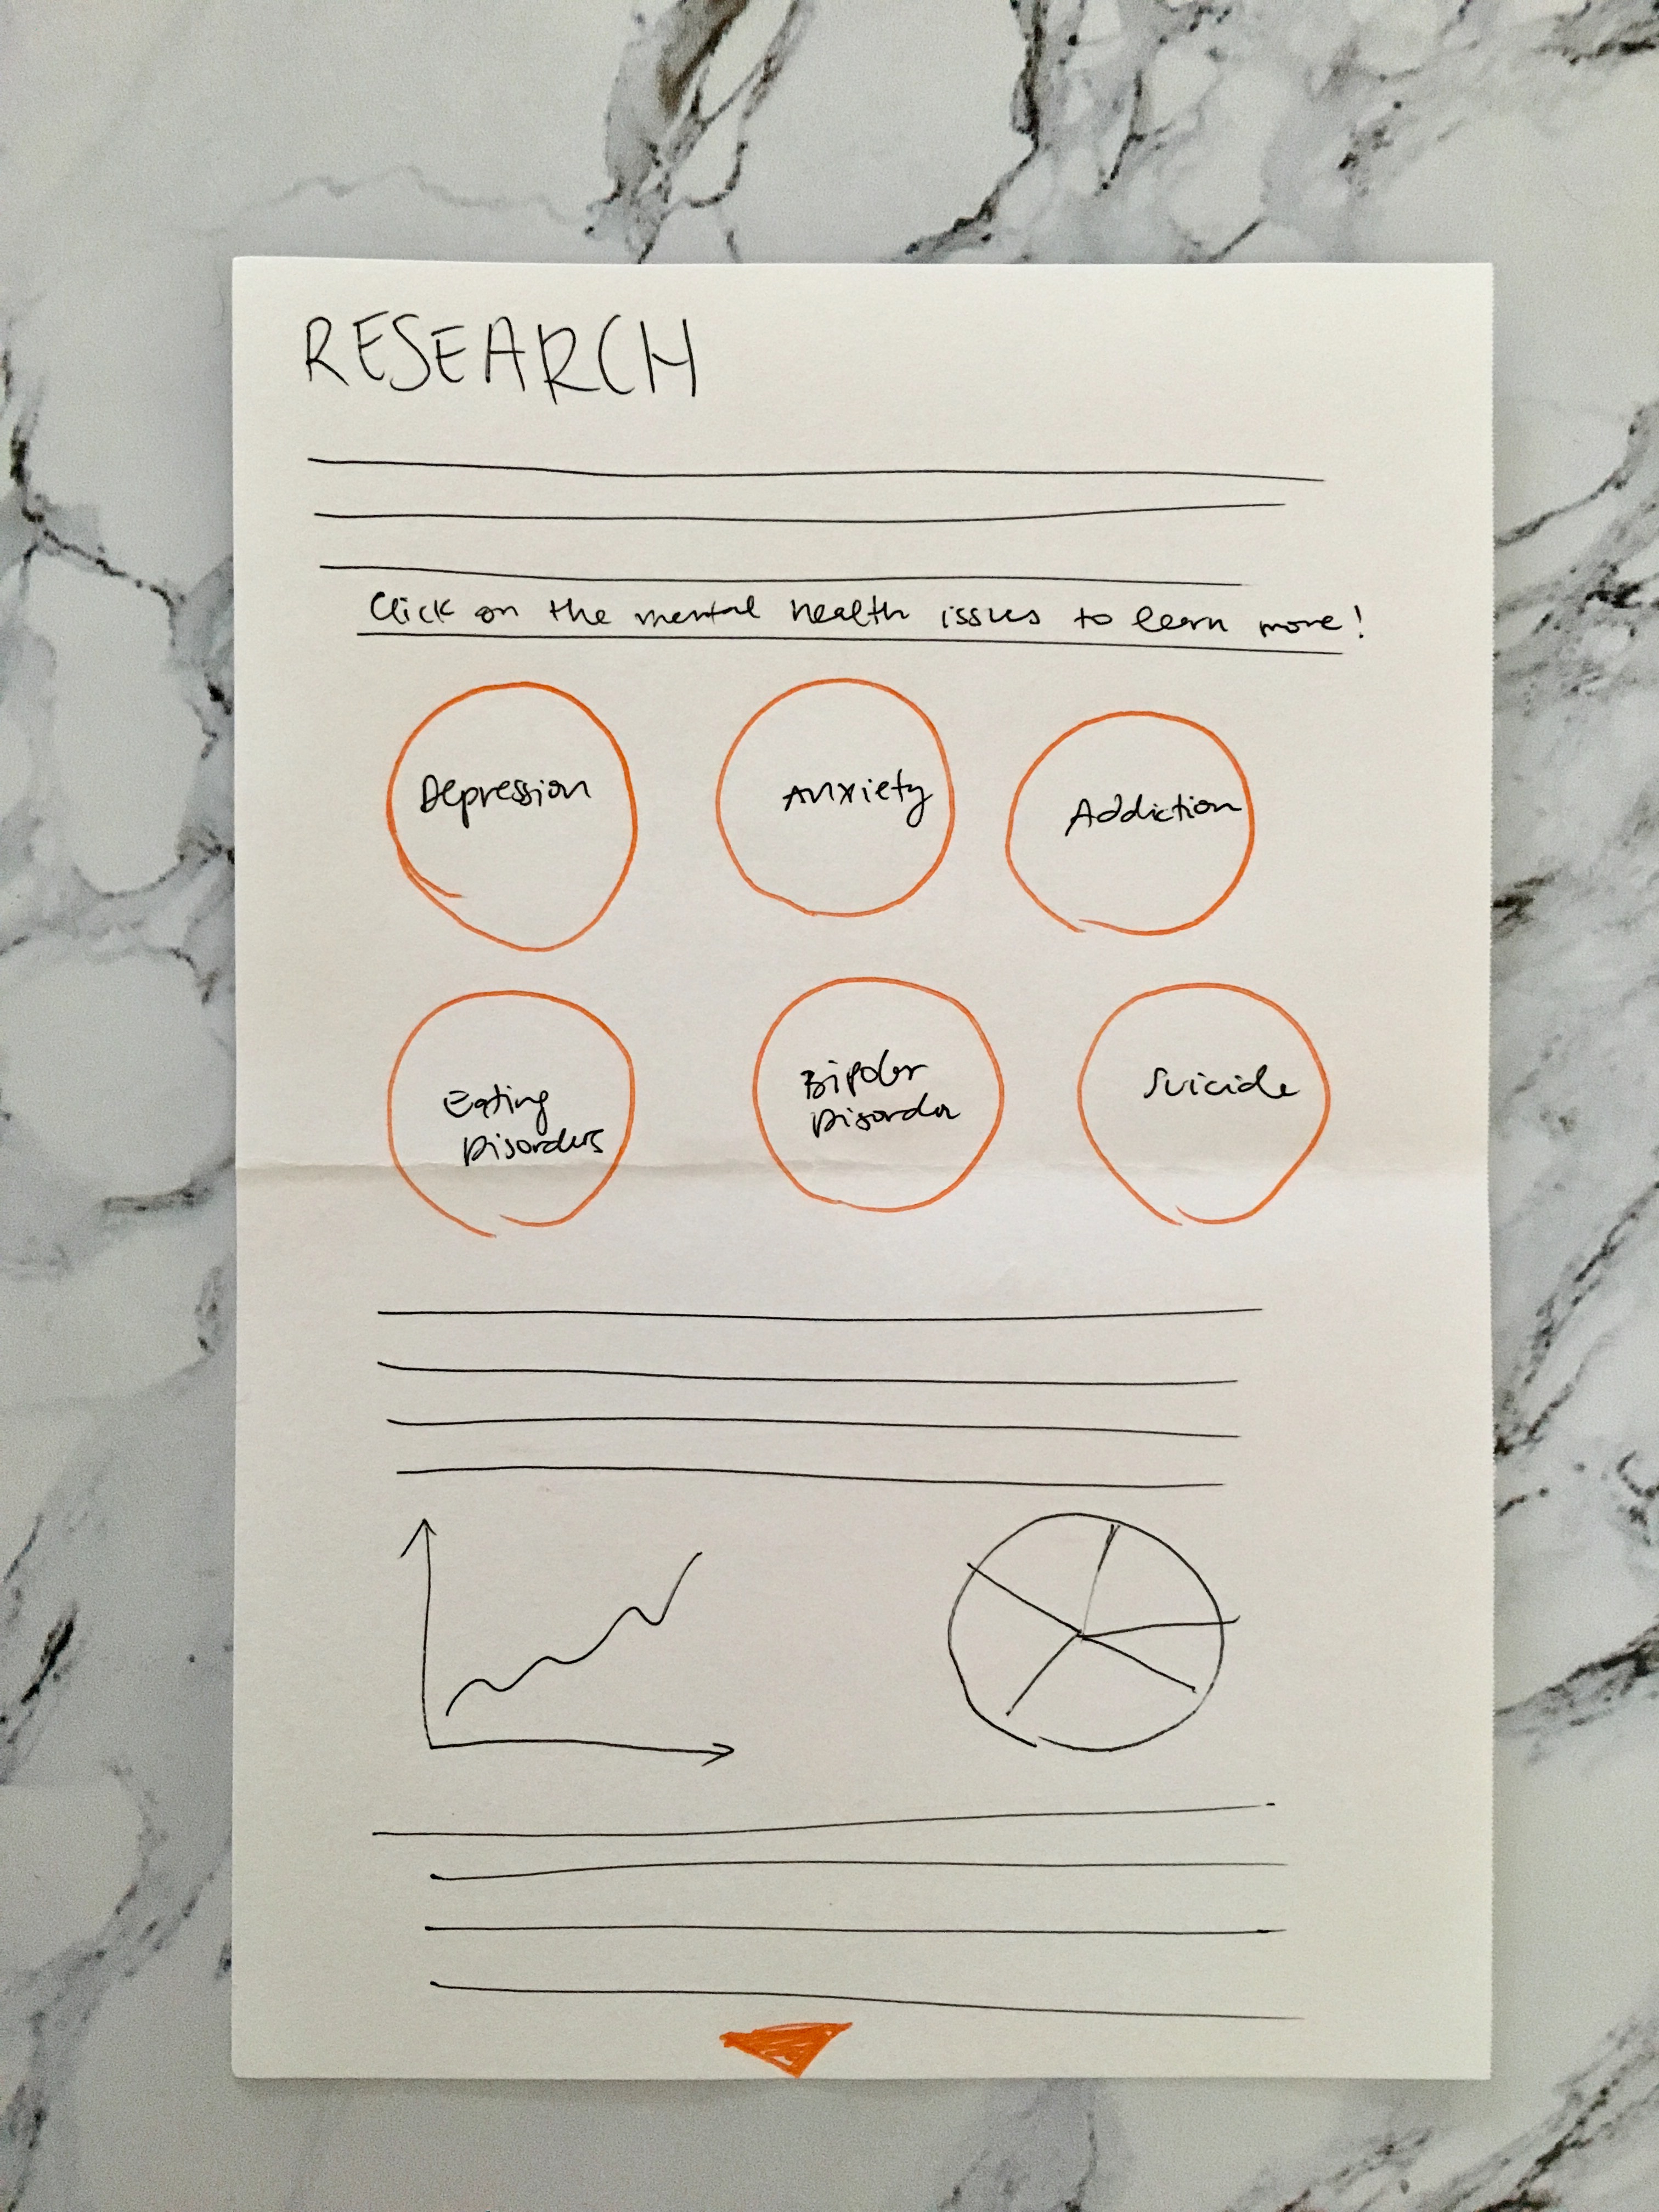 RESEARCH
Click on the mental health issues to learn more!
Depression
Anxiety
Addiction
Eating
Disorders
Bipolar
Disorder
Suicide